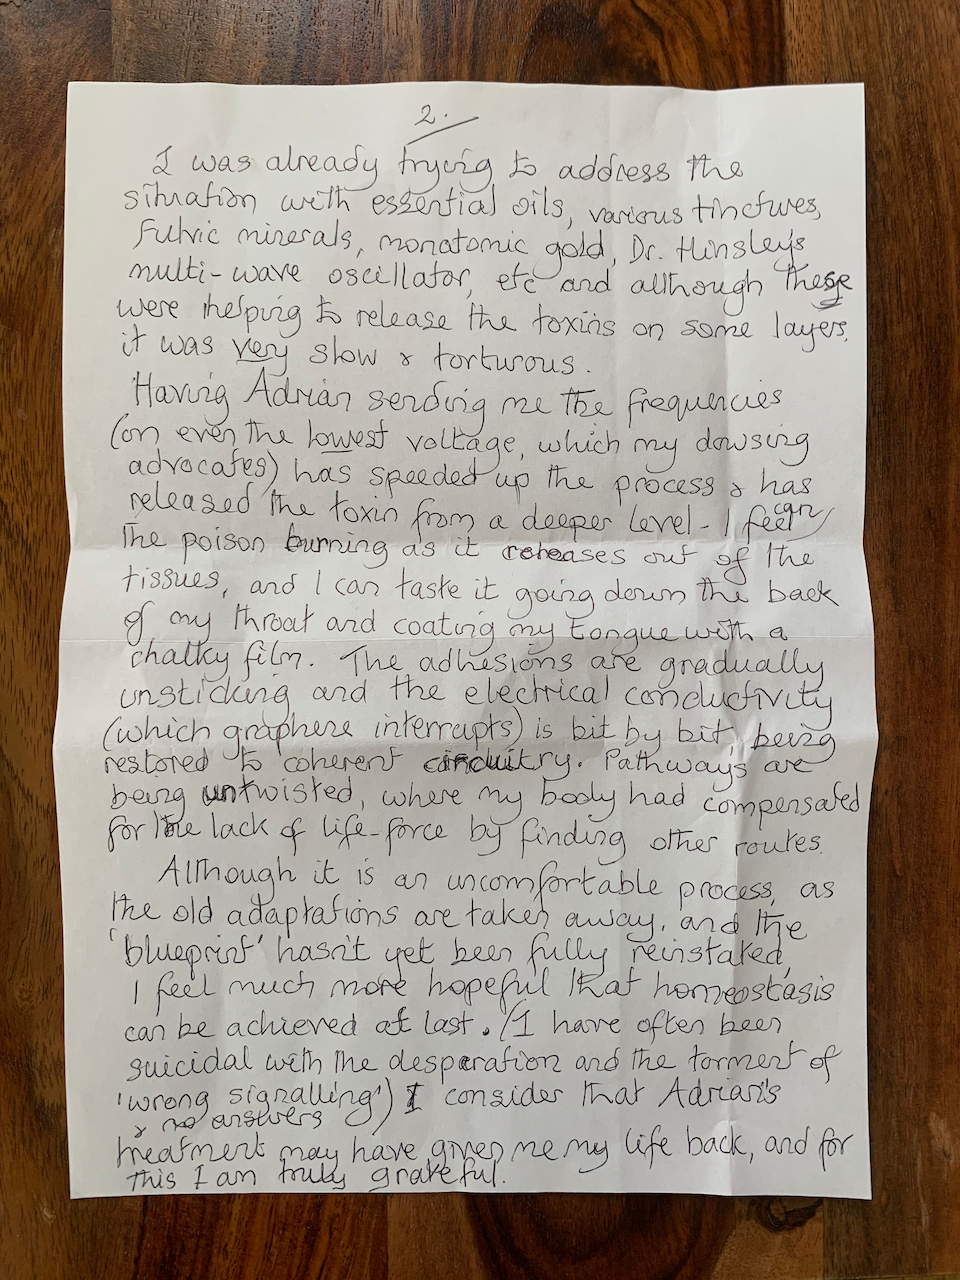 2.
I was already trying to address the
situation with essential oils, various tinctures,
fulvic minerals, monatomic gold, Dr. Hinsley's
multi-wave oscillator, etc and although these
were helping to release the toxins on some layers,
it was very slow & torturous.
Having Adrian sending me the frequencies
(on even the lowest voltage, which my dowsing
advocates) has speeded up the process & has
released the toxin from a deeper level - I can feel
the poison burning as it releases out of the
tissues, and I can taste it going down the back
of my throat and coating my tongue with a
chalky film. The adhesions are gradually
unsticking and the electrical conductivity
(which graphene interrupts) is bit by bit, being
restored to coherent circuitry. Pathways are
being untwisted, where my body had compensated
for the lack of life-force by finding other routes.
Although it is an uncomfortable process, as
the old adaptations are taken away, and the
'blueprint' hasn't yet been fully reinstated,
I feel much more hopeful that homeostasis
can be achieved at last. (I have often been
suicidal with the desperation and the torment of
'wrong signalling') I consider that Adrian's
& no answers
treatment may have given me my life back, and for
this I am truly grateful.